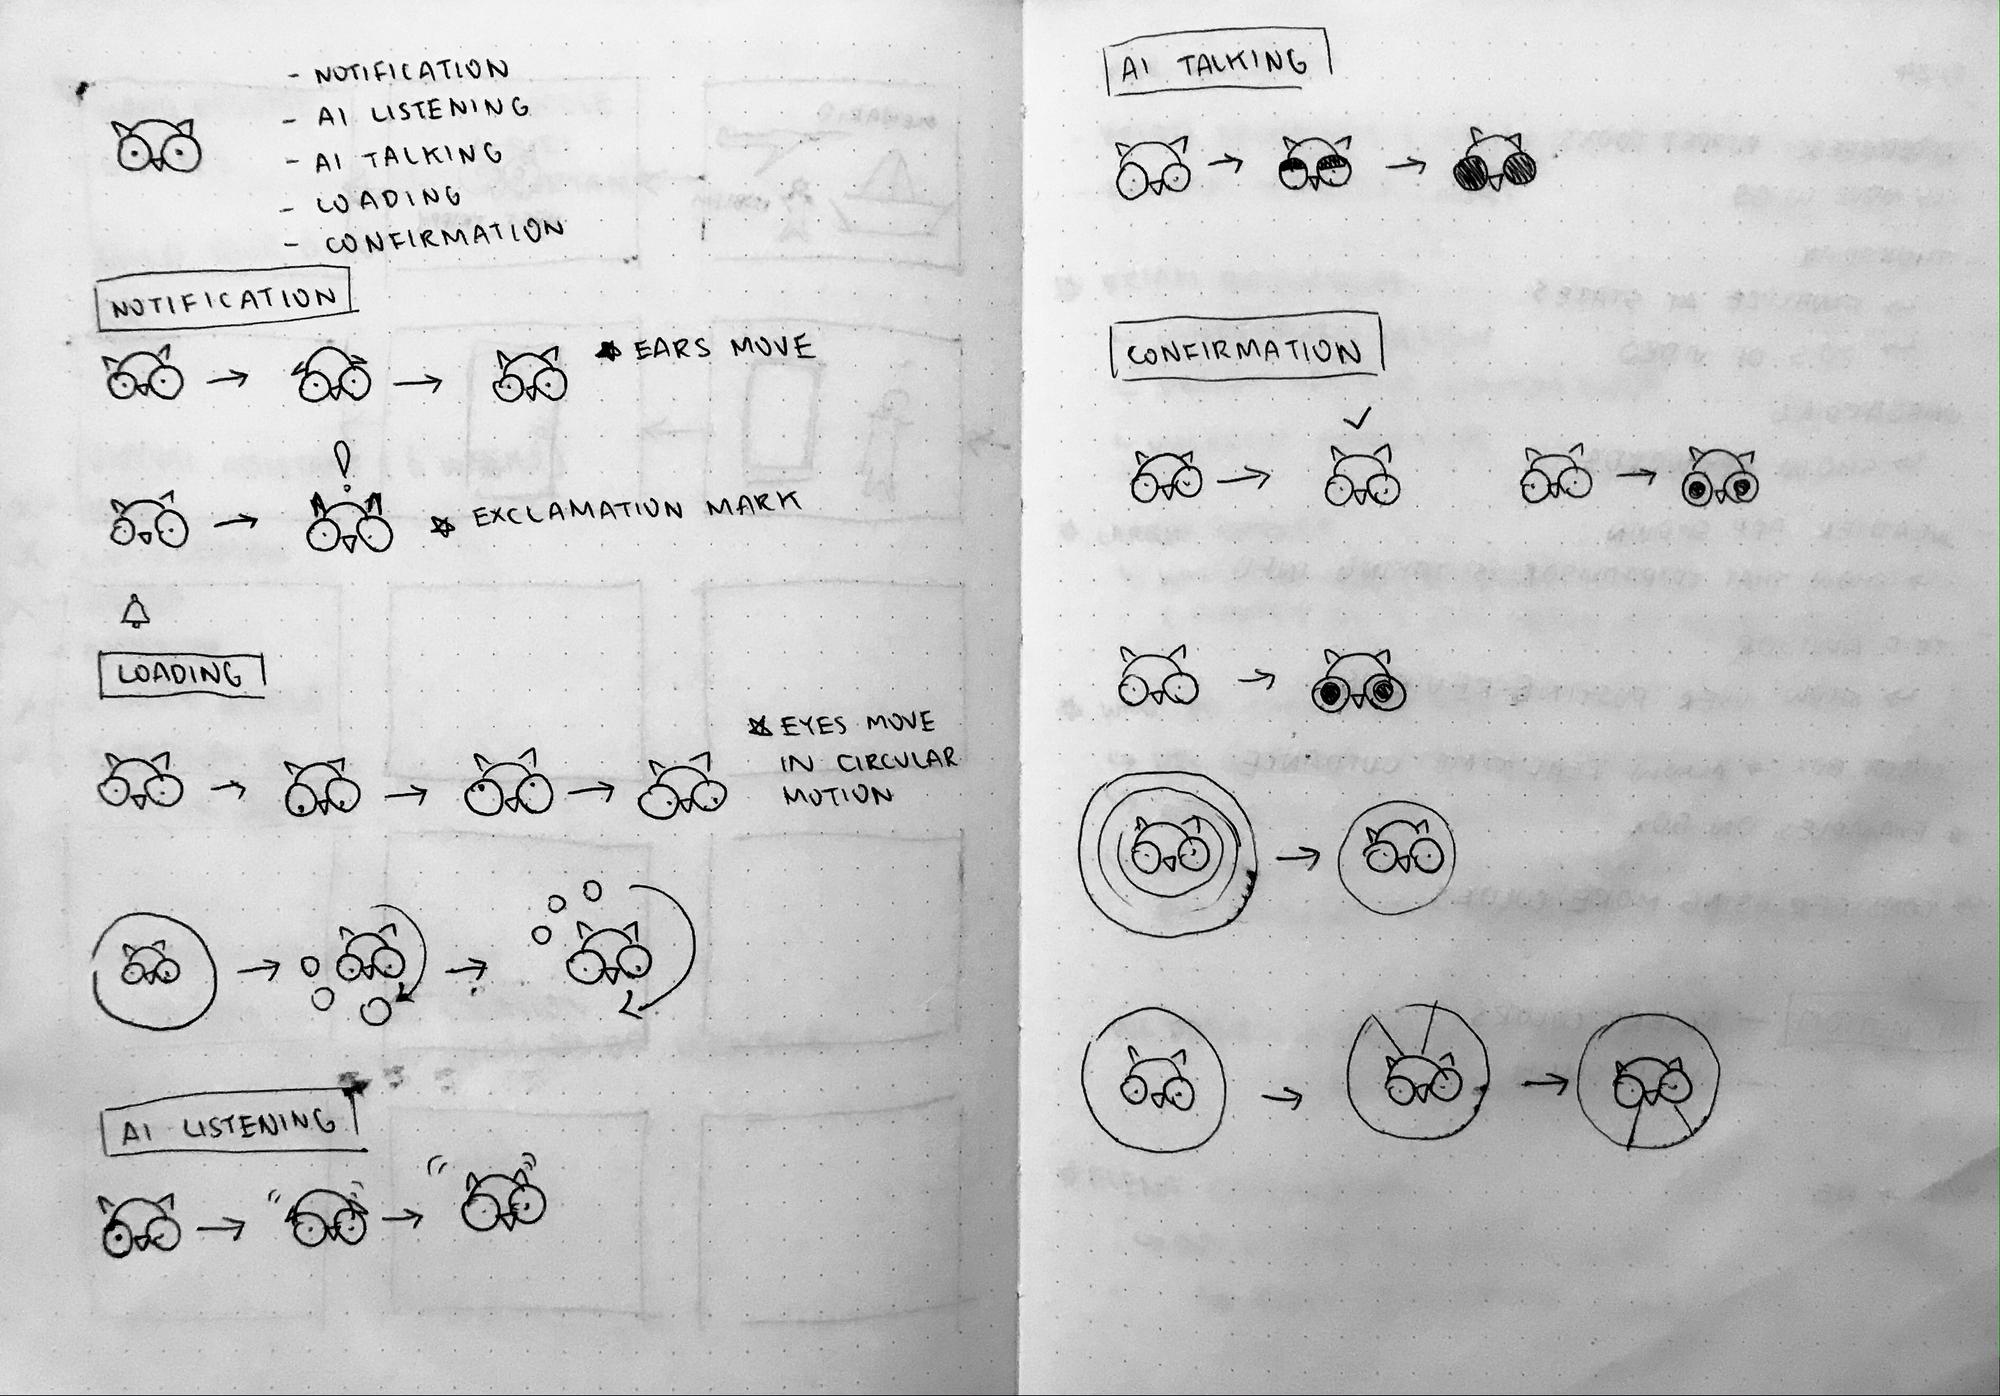 - NOTIFICATION
- AI LISTENING
- AI TALKING
- LOADING
- CONFIRMATION
NOTIFICATION
EARS MOVE
!
EXCLAMATION MARK
LOADING
EYES MOVE
IN CIRCULAR
MOTION
AI LISTENING
AI TALKING
CONFIRMATION